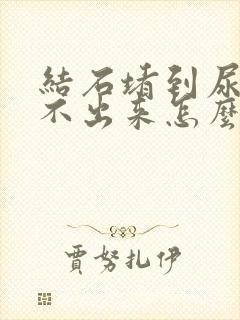 結石堵到尿
不出来怎麼
賈努扎伊